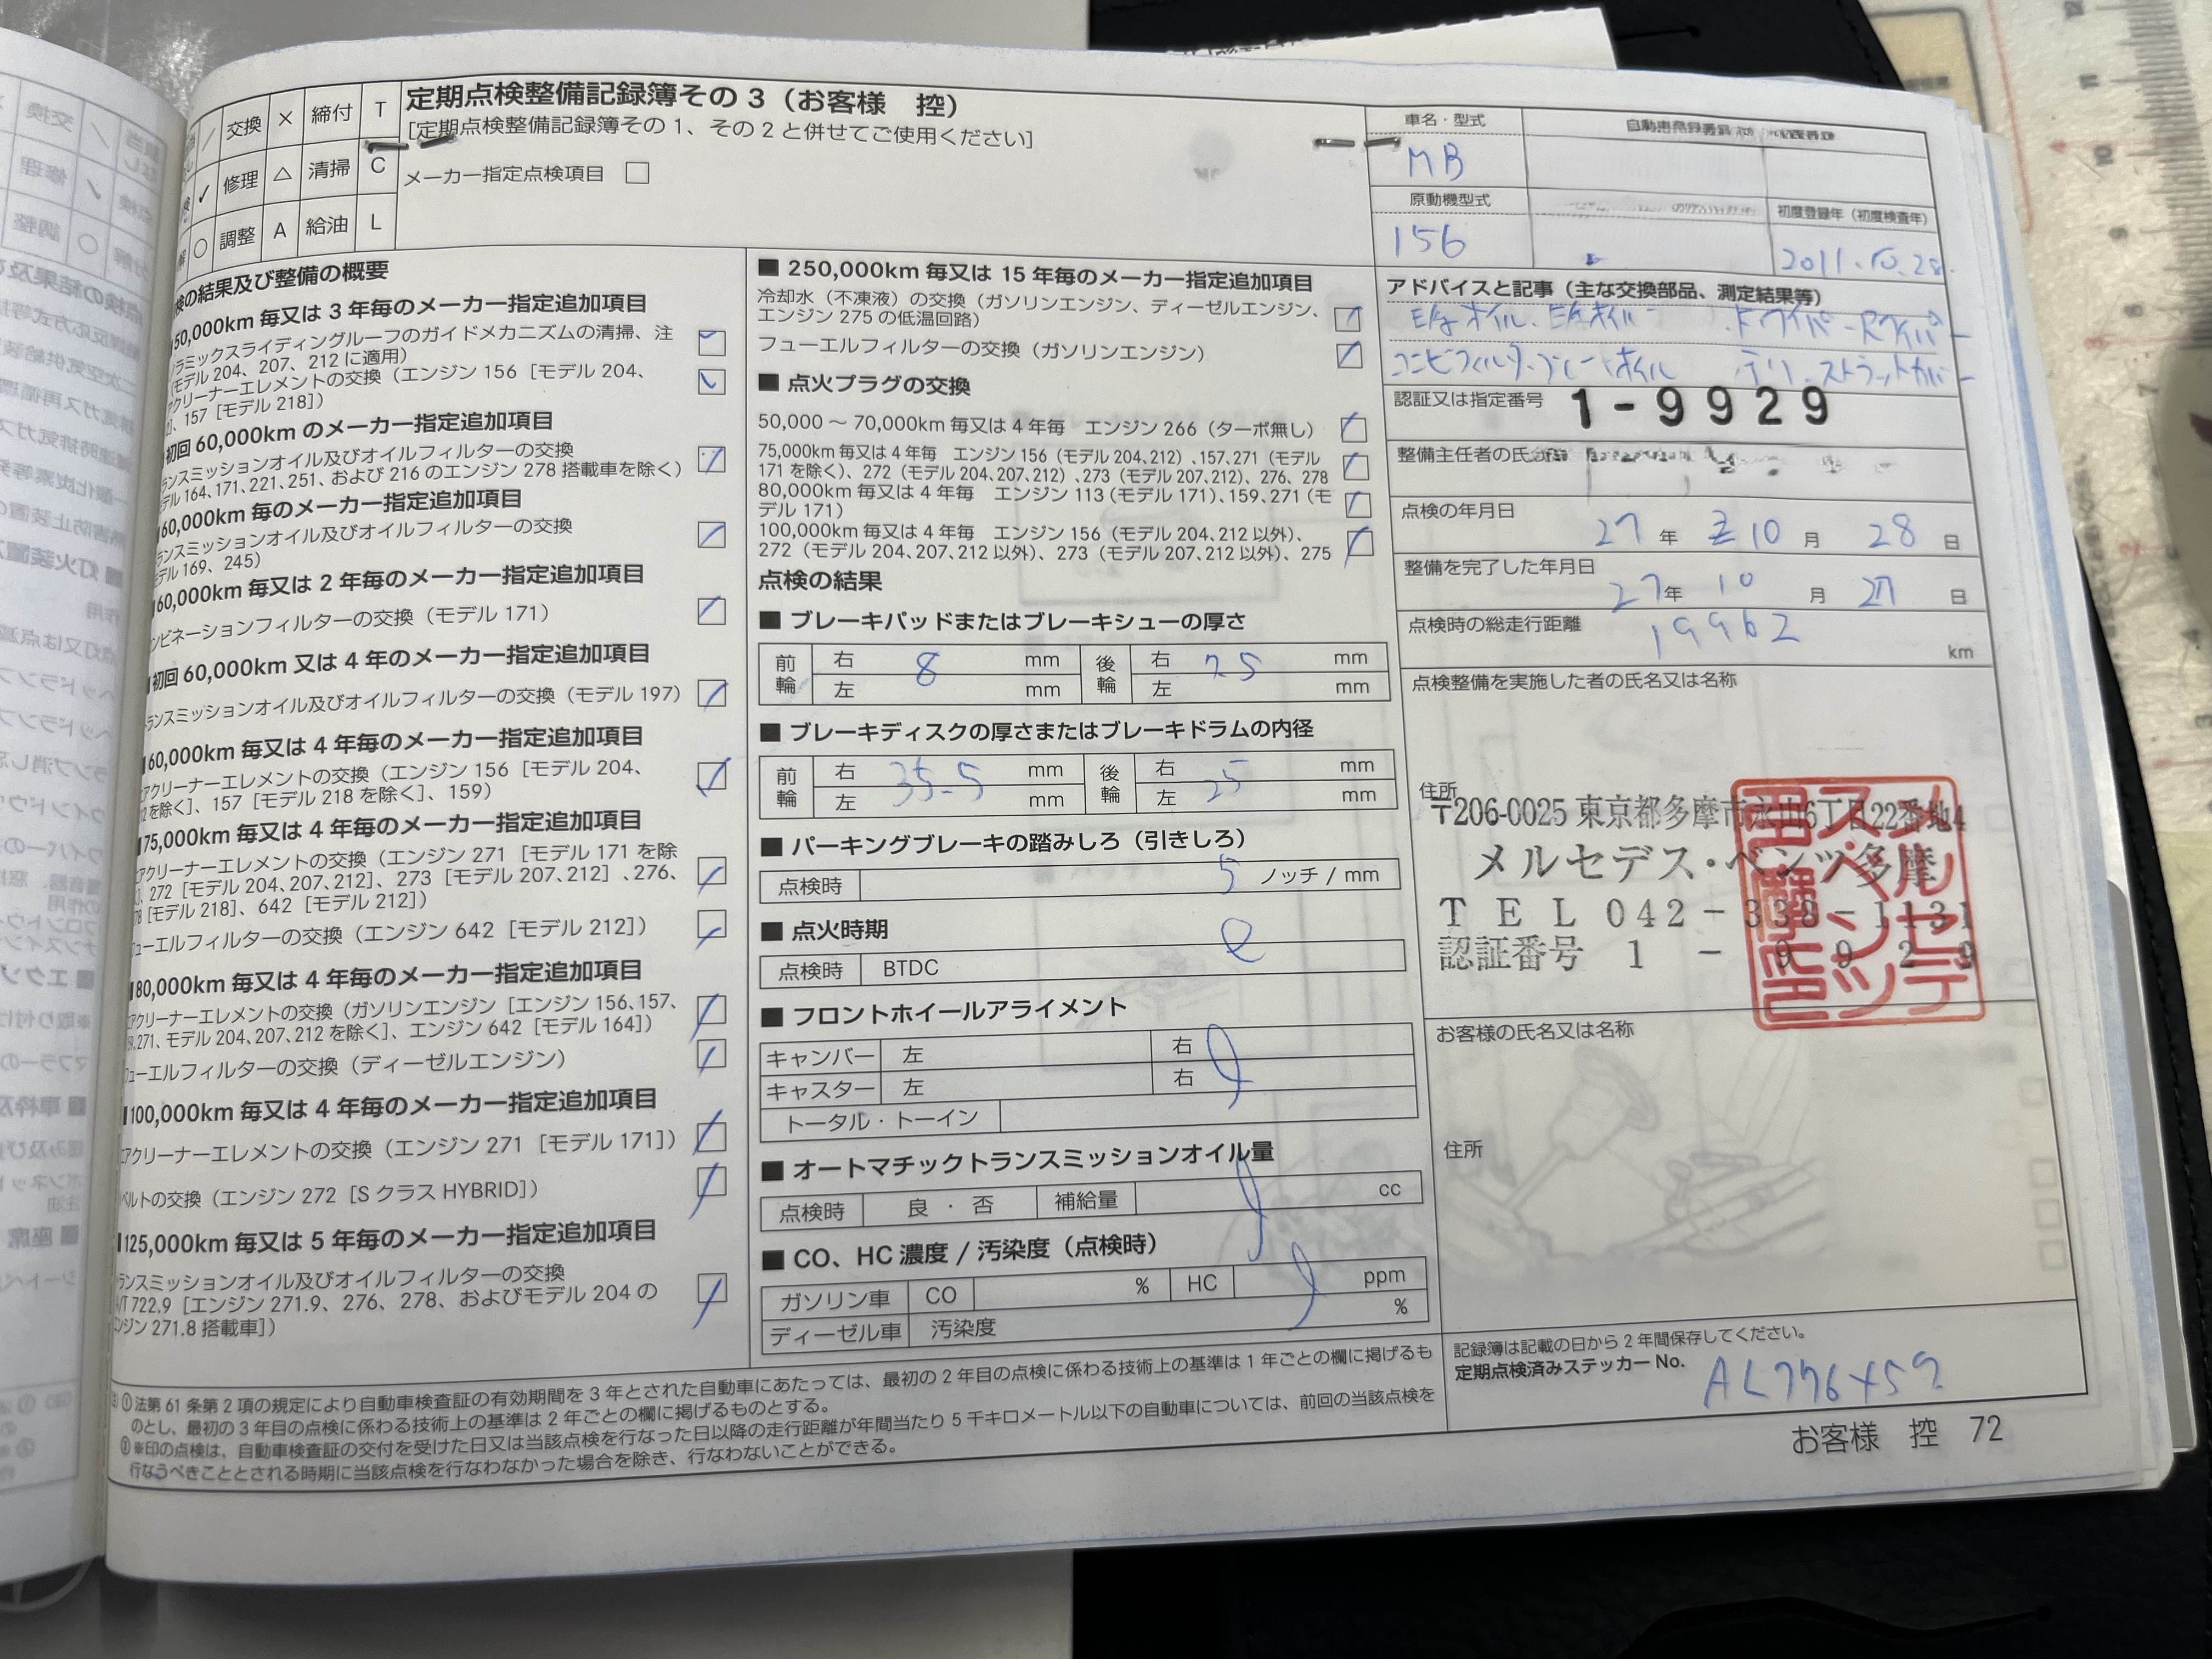 交換 × 締付 T
修理 △ 清掃 C
調整 A 給油 L
定期点検整備記録簿その3（お客様 控）
[定期点検整備記録簿その1、その2と併せてご使用ください]
メーカー指定点検項目 □
検の結果及び整備の概要
50,000km 毎又は 3 年毎のメーカー指定追加項目
ラミックスライディングルーフのガイドメカニズムの清掃、注
（モデル 204、207、212 に適用）
アクリーナーエレメントの交換（エンジン 156［モデル 204、
2］、157［モデル 218］）
初回 60,000km のメーカー指定追加項目
ランスミッションオイル及びオイルフィルターの交換
デル 164、171、221、251、および 216 のエンジン 278 搭載車を除く）
60,000km 毎のメーカー指定追加項目
ランスミッションオイル及びオイルフィルターの交換
デル 169、245）
60,000km 毎又は 2 年毎のメーカー指定追加項目
ンビネーションフィルターの交換（モデル 171）
初回 60,000km 又は 4 年のメーカー指定追加項目
ランスミッションオイル及びオイルフィルターの交換（モデル 197）
60,000km 毎又は 4 年毎のメーカー指定追加項目
エアクリーナーエレメントの交換（エンジン 156［モデル 204、
2 を除く］、157［モデル 218 を除く］、159）
75,000km 毎又は 4 年毎のメーカー指定追加項目
エアクリーナーエレメントの交換（エンジン 271［モデル 171 を除
］、272［モデル 204、207、212］、273［モデル 207、212］、276、
78［モデル 218］、642［モデル 212］）
ューエルフィルターの交換（エンジン 642［モデル 212］）
80,000km 毎又は 4 年毎のメーカー指定追加項目
エアクリーナーエレメントの交換（ガソリンエンジン［エンジン 156、157、
9、271、モデル 204、207、212 を除く］、エンジン 642［モデル 164］）
ューエルフィルターの交換（ディーゼルエンジン）
100,000km 毎又は 4 年毎のメーカー指定追加項目
エアクリーナーエレメントの交換（エンジン 271［モデル 171］）
ベルトの交換（エンジン 272［S クラス HYBRID］）
125,000km 毎又は 5 年毎のメーカー指定追加項目
ランスミッションオイル及びオイルフィルターの交換
A/T 722.9［エンジン 271.9、276、278、およびモデル 204 の
ンジン 271.8 搭載車］）
■ 250,000km 毎又は 15 年毎のメーカー指定追加項目
冷却水（不凍液）の交換（ガソリンエンジン、ディーゼルエンジン、
エンジン 275 の低温回路）
フューエルフィルターの交換（ガソリンエンジン）
■ 点火プラグの交換
50,000 ～ 70,000km 毎又は 4 年毎 エンジン 266（ターボ無し）
75,000km 毎又は 4 年毎 エンジン 156（モデル 204、212）、157、271（モデル
171 を除く）、272（モデル 204、207、212）、273（モデル 207、212）、276、278
80,000km 毎又は 4 年毎 エンジン 113（モデル 171）、159、271（モ
デル 171）
100,000km 毎又は 4 年毎 エンジン 156（モデル 204、212 以外）、
272（モデル 204、207、212 以外）、273（モデル 207、212 以外）、275
点検の結果
■ ブレーキパッドまたはブレーキシューの厚さ
前輪 右 8 mm 後輪 右 7.5 mm
左 mm 左 mm
■ ブレーキディスクの厚さまたはブレーキドラムの内径
前輪 右 35.5 mm 後輪 右 25 mm
左 mm 左 mm
■ パーキングブレーキの踏みしろ（引きしろ）
点検時 5 ノッチ / mm
■ 点火時期
点検時 BTDC
■ フロントホイールアライメント
キャンバー 左 右
キャスター 左 右
トータル・トーイン
■ オートマチックトランスミッションオイル量
点検時 良 ・ 否 補給量 cc
■ CO、HC 濃度 / 汚染度（点検時）
ガソリン車 CO % HC ppm
ディーゼル車 汚染度 %
車名・型式
MB
原動機型式 初度登録年（初度検査年）
156 2011.10.28.
アドバイスと記事（主な交換部品、測定結果等）
認証又は指定番号 1-9929
整備主任者の氏名
点検の年月日
27 年 10 月 28 日
整備を完了した年月日
27 年 10 月 27 日
点検時の総走行距離 19962 km
点検整備を実施した者の氏名又は名称
住所
〒206-0025 東京都多摩市永山6丁目22番地4
メルセデス・ベンツ多摩
TEL 042-338-1131
認証番号 1-9929
お客様の氏名又は名称
住所
記録簿は記載の日から 2 年間保存してください。
定期点検済みステッカー No. AL776459
① 法第 61 条第 2 項の規定により自動車検査証の有効期間を 3 年とされた自動車にあたっては、最初の 2 年目の点検に係わる技術上の基準は 1 年ごとの欄に掲げるも
のとし、最初の 3 年目の点検に係わる技術上の基準は 2 年ごとの欄に掲げるものとする。
② ※印の点検は、自動車検査証の交付を受けた日又は当該点検を行なった日以降の走行距離が年間当たり 5 千キロメートル以下の自動車については、前回の当該点検を
行なうべきこととされる時期に当該点検を行なわなかった場合を除き、行なわないことができる。
お客様 控 72